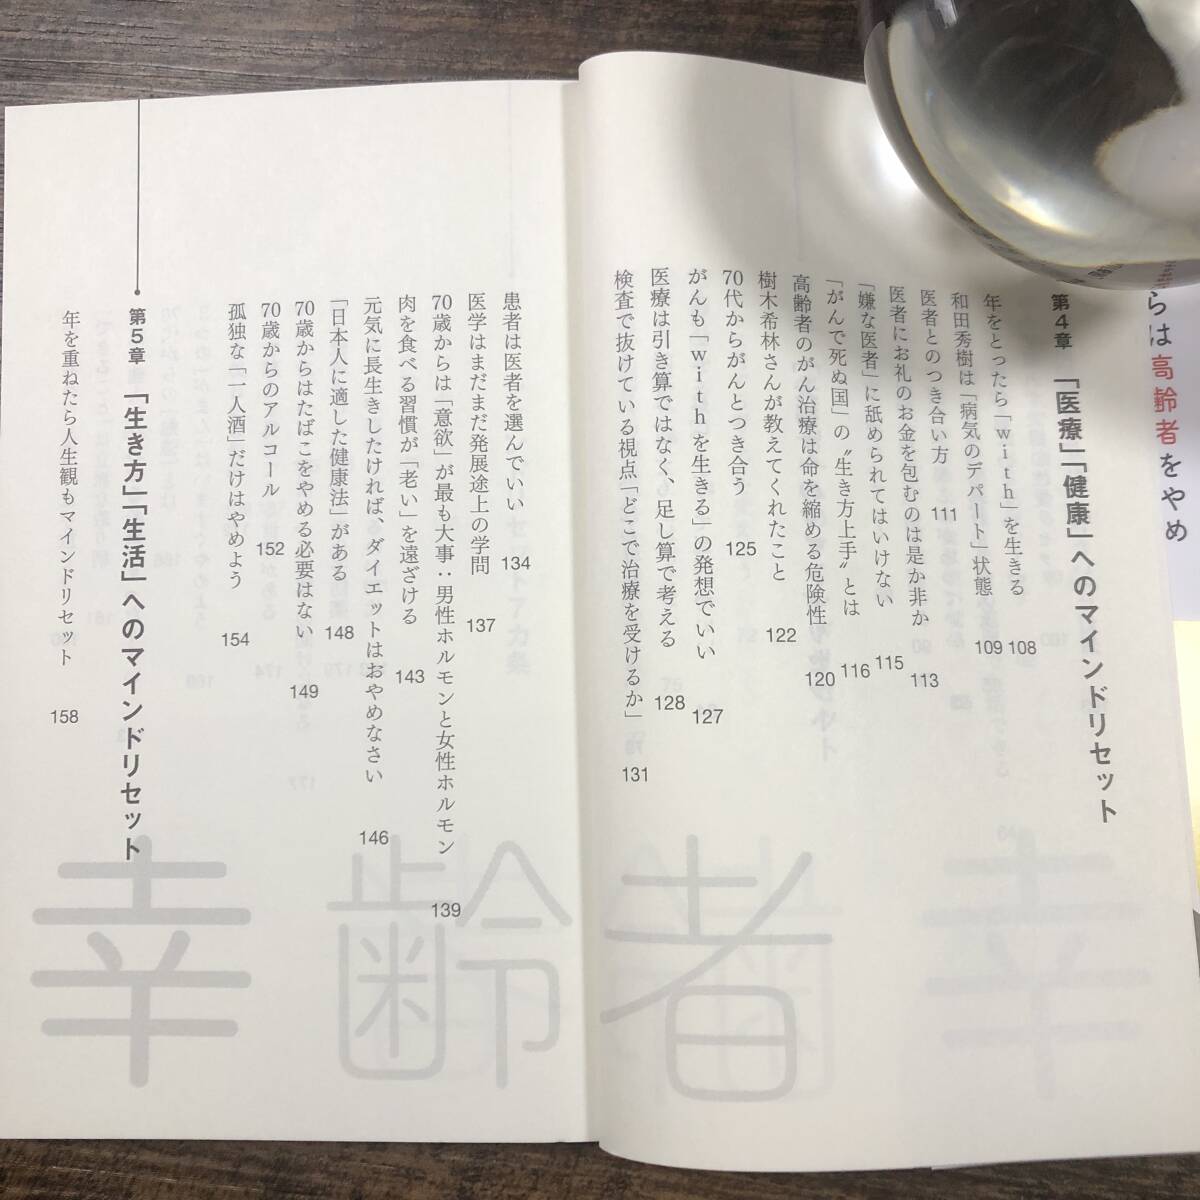 らは高齢者をやめ
第4章 「医療」「健康」へのマインドリセット
年をとったら「with」を生きる 108
和田秀樹は「病気のデパート」状態 109
医者とのつき合い方 111
医者にお礼のお金を包むのは是か非か 113
「嫌な医者」に舐められてはいけない 115
「がんで死ぬ国」の〝生き方上手〟とは 116
高齢者のがん治療は命を縮める危険性 120
樹木希林さんが教えてくれたこと 122
70代からがんとつき合う 125
がんも「withを生きる」の発想でいい 127
医療は引き算ではなく、足し算で考える 128
検査で抜けている視点「どこで治療を受けるか」 131
患者は医者を選んでいい 134
医学はまだまだ発展途上の学問 137
70歳からは「意欲」が最も大事：男性ホルモンと女性ホルモン 139
肉を食べる習慣が「老い」を遠ざける 143
元気に長生きしたければ、ダイエットはおやめなさい 146
「日本人に適した健康法」がある 148
70歳からはたばこをやめる必要はない 149
70歳からのアルコール 152
孤独な「一人酒」だけはやめよう 154
第5章 「生き方」「生活」へのマインドリセット
年を重ねたら人生観もマインドリセット 158
幸齢者